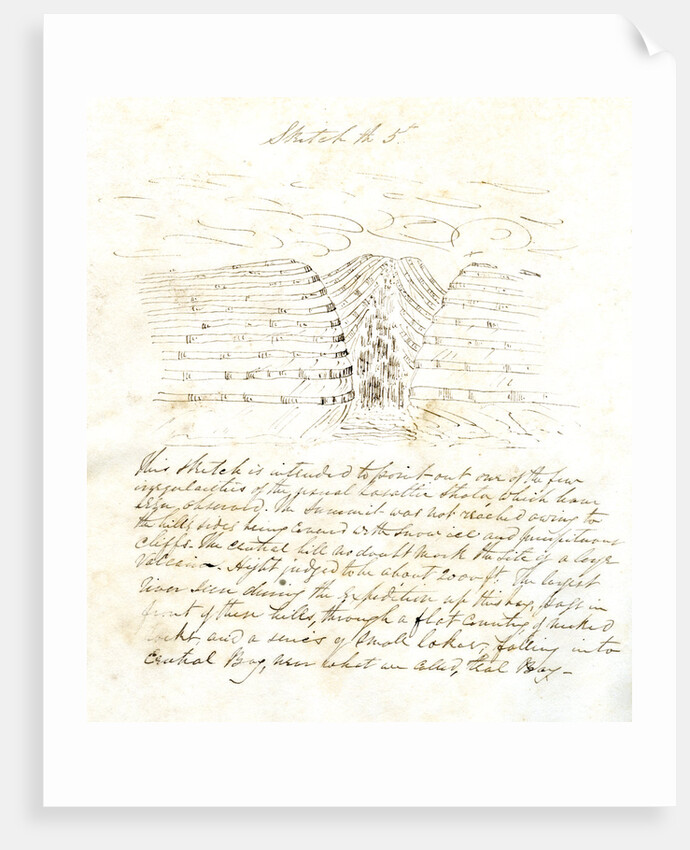 Sketch th 5t.
This Sketch is intended to point out one of the few
irregularities of the usual basaltic Strata which have
been observed. The Summit was not reached owing to
the hills sides being covered with Snow ice and
cliffs. The central hill no doubt mark the site of a large
Hight judged to be about 2000 ft. The largest
river seen during the Expedition up this bay, in
front of these hills, through a flat Country of
and a series of Small lakes, falling into
Central Bay, near what we called, Seal Bay -